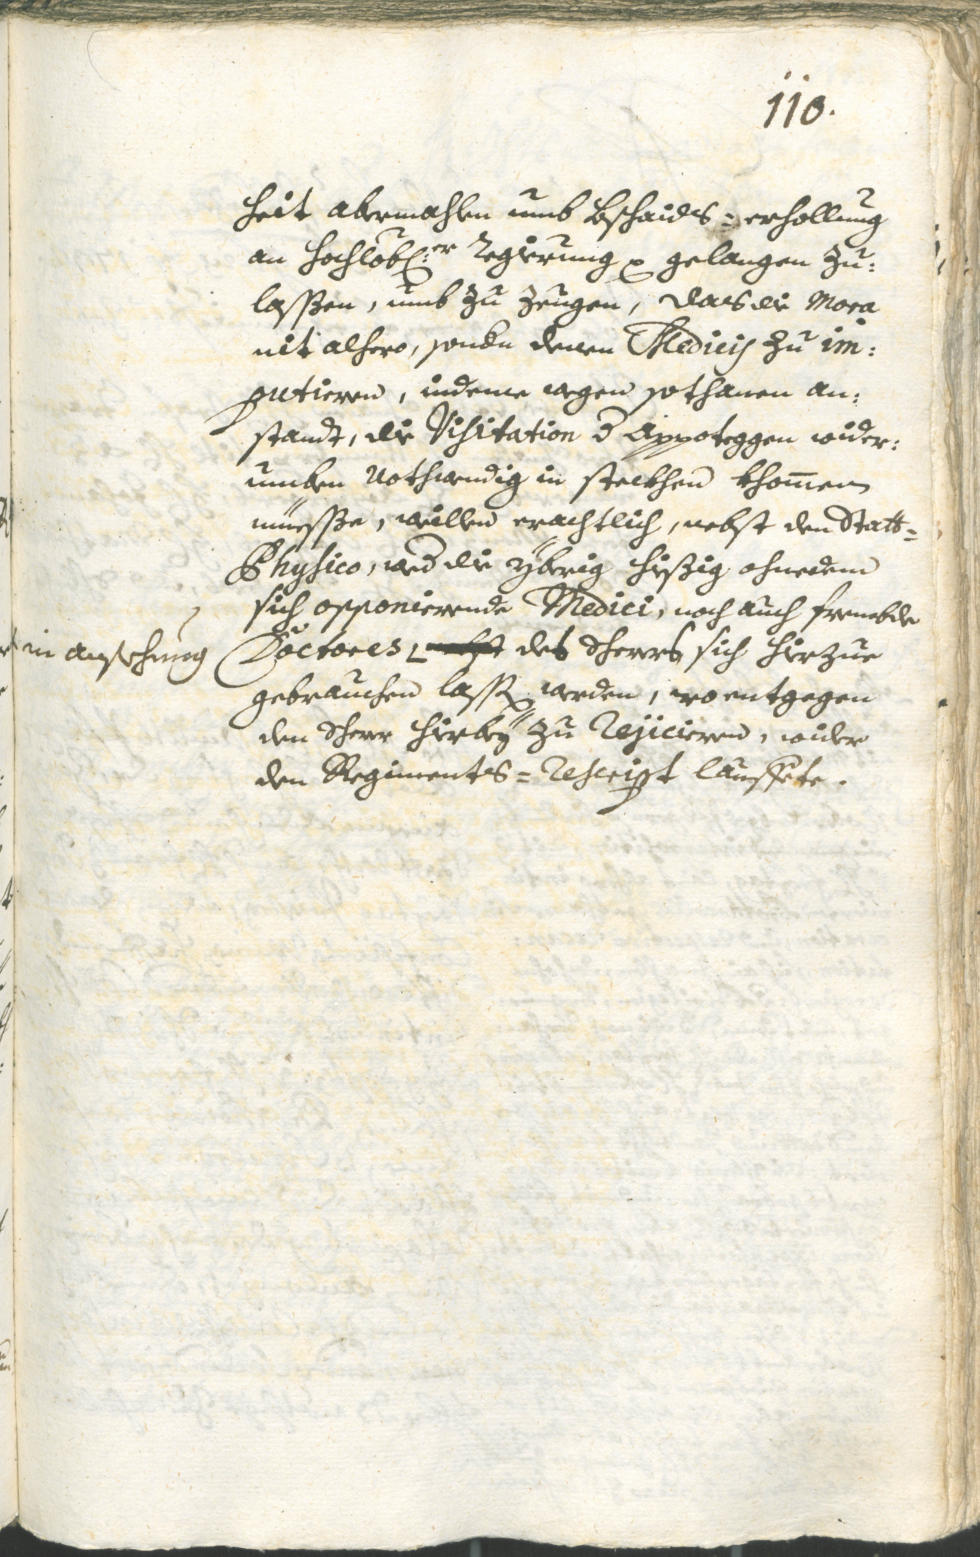 110.
heit abermahlen umb bschaids=erhollung
an hochlobl:er Regierung gelangen zu:
lassen, umb zu zeugen, das die Mora
nit alhero, sondern denen Medicis zu im:
putieren, indeme wegen sothanen an:
standt, die Visitation d Appoteggen wider:
umben Nothwendig in steckhen khom̄en
müesste, weillen erachtlich, nebst den Statt=
Physico, wed die yberig hießig ohnedem
sich opponierende Medici, noch auch frembde
in ansehung
Doctores, des Scherrs sich hierzue
gebrauchen lassen werden, wo entgegen
den Scherr hierbey zu Rejicieren, wider
den Regiments=Rescript lauffete.